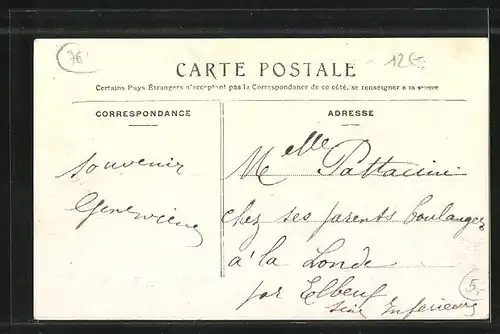 7€
12€
CARTE POSTALE
Certains Pays Étrangers n'acceptant pas la Correspondance de ce côté, se renseigner à la
CORRESPONDANCE
ADRESSE
souvenir
Geneviève
Melle Pattacini
chez ses parents boulanger
à la Londe
par Elbeuf
Seine Inférieure
5.-